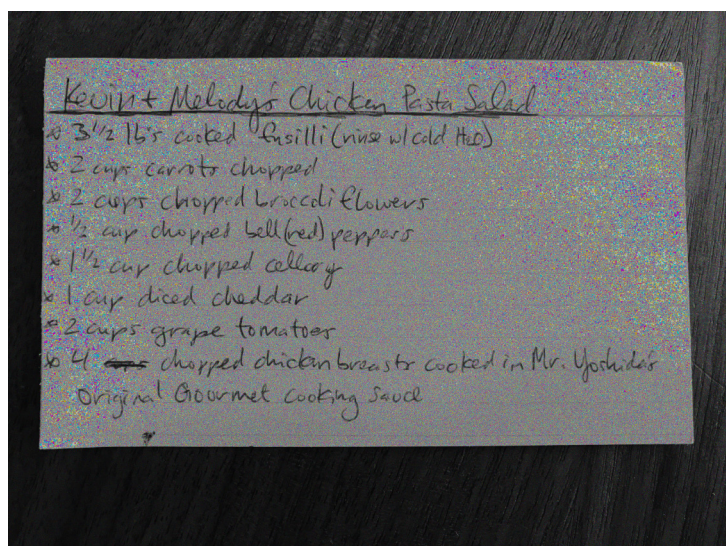 Kevin + Melody's Chicken Pasta Salad
* 3 1/2 lb's cooked fusilli (rinse w/ cold H2O)
* 2 cups carrots chopped
* 2 cups chopped broccoli flowers
* 1/2 cup chopped bell (red) peppers
* 1 1/2 cup chopped cellery
* 1 cup diced cheddar
* 2 cups grape tomatoes
* 4 chopped chicken breasts cooked in Mr. Yoshida's
Original Gourmet Cooking Sauce